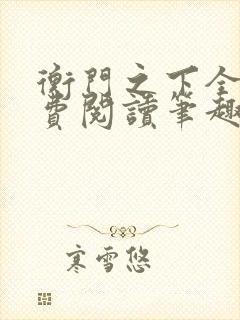 衡門之下全
費閱讀筆趣
寒雪悠